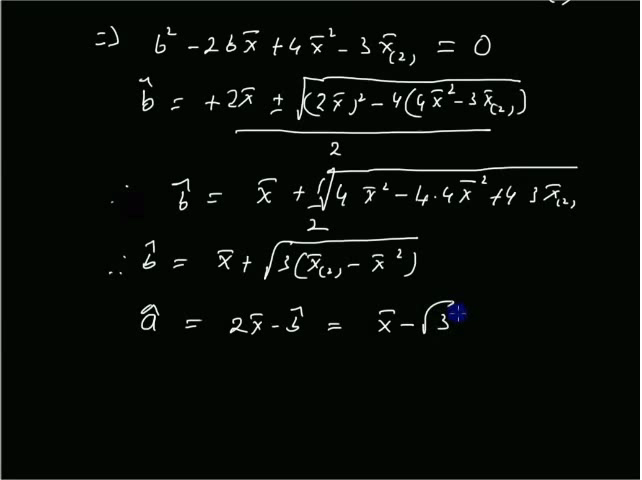 => b² - 2bx̄ + 4x̄² - 3x̄₍₂₎ = 0
b̂ = +2x̄ ± √((2x̄)² - 4(4x̄² - 3x̄₍₂₎)) / 2
∴ b̂ = x̄ + 1/2 √(4x̄² - 4·4x̄² + 4 3x̄₍₂₎)
∴ b̂ = x̄ + √(3(x̄₍₂₎ - x̄²))
â = 2x̄ - b̂ = x̄ - √3